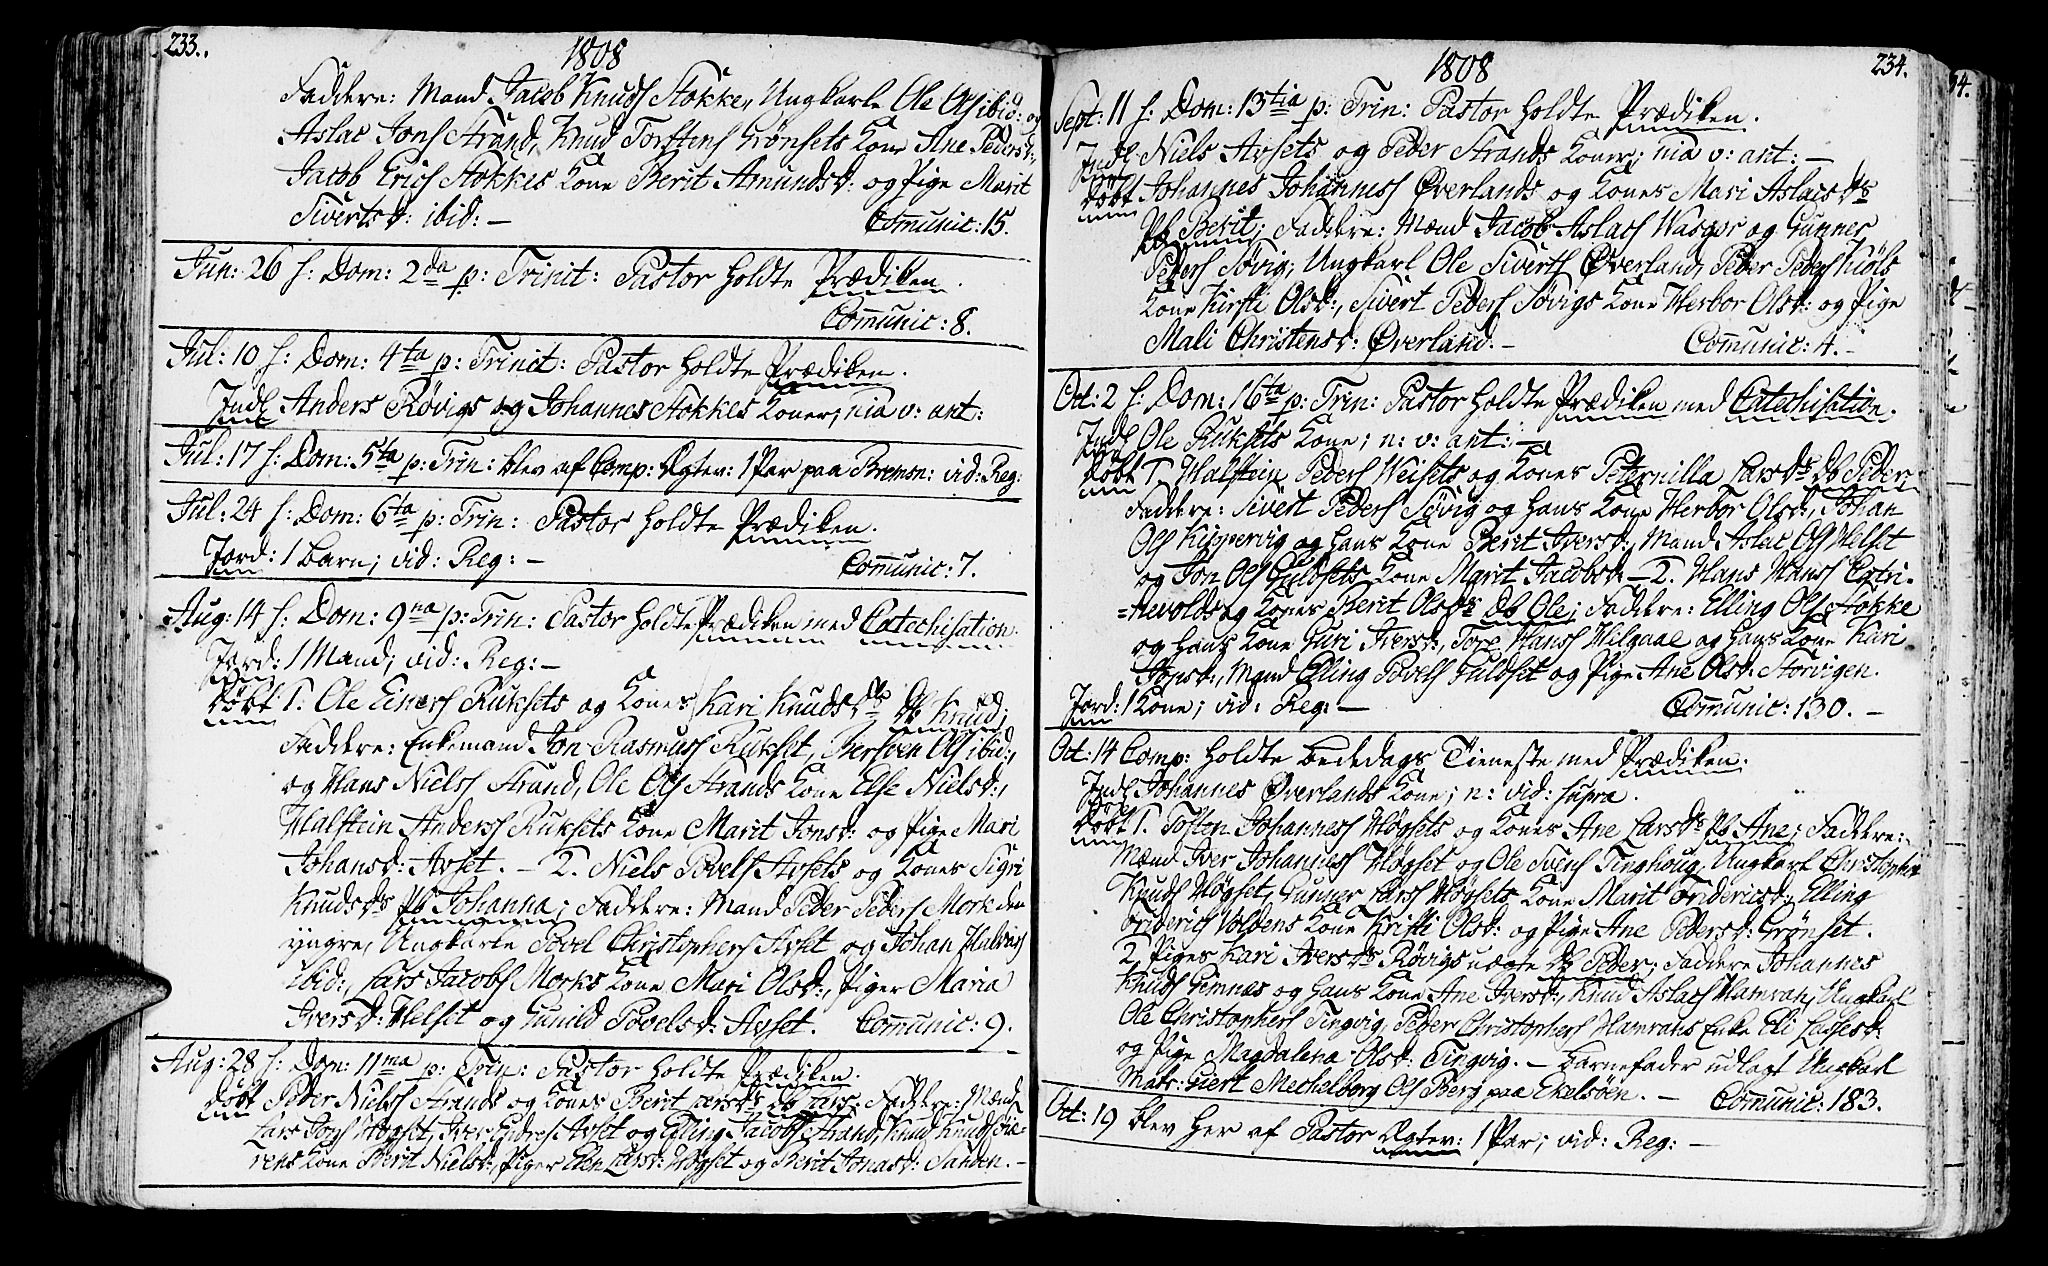 233.
1808
Faddere: Mand Jacob Knuds Stokke, Ungkarle Ole Ols ibid: og
Aslac Jons Strand, Knud Torstens Grönsets Kone Ane Pedersd:,
Jacob Erics Stokkes Kone Berit Amundsd: og Pige Marit
Sivertsd: ibid: –
Comunic: 15.
Jun: 26 h: Dom: 2da p: Trinit: Pastor holdte Prædiken.
Comunic: 8.
Jul: 10 h: Dom: 4ta p: Trinit: Pastor holdte Prædiken.
Indl Anders Røvigs og Johannes Stokkes Koner; nia v: ant:
Jul: 17 h: Dom: 5ta p: Trin: blev af Comp: Ægtev: 1 Par paa Bremsn: vid: Reg:
Jul: 24 h: Dom: 6ta p: Trin: Pastor holdte Prædiken.
Jord: 1 Barn; vid: Reg: –
Comunic: 7.
Aug: 14 h: Dom: 9na p: Trin: Pastor holdte Prædiken med Catechisation.
Jord: 1 Mand; vid: Reg: –
Döbt 1. Ole Einers Ruksets og Kones Kari Knudsds Db Knud;
Faddere: Enkemand Jon Rasmuss Rukset, Bersven Ols ibid:,
og Hans Niels Strand, Ole Ols Strands Kone Else Nielsd:,
Halstein Anders Ruksets Kone Marit Jonsd: og Pige Mari
Johansd: Avset. – 2. Niels Povels Avsets og Kones Sigri
Knudsds Pb Johanna; Faddere: Mand Peder Peders Mork den
yngre, Ungkarle Povel Christophers Avset og Johan
ibid:, Lars Jacobs Morks Kone Mari Olsd:, Piger Maria
Iversd: Helset og Gunild Povelsd: Avset. Comunic: 9.
Aug: 28 h: Dom: 11ma p: Trin: Pastor holdte Prædiken.
Döbt Peder Niels Strands og Kones Berit Larsds Db Lars; Faddere: Mænd
Lars Jons Högset, Iver Endres Avset og Elling Jacobs Strand, Knud Knuds
Kone Berit Nielsd:, Piger Elen Larsd: Högset og Berit Jonasd: Sanden. –
234.
1808
Sept: 11 h: Dom: 13tia p: Trin: Pastor holdte Prædiken.
Indl Niels Avsets og Peder Strands Koner; nia v: ant: –
Döbt Johannes Johanness Øverlands og Kones Mari Aslacsds
Pb Berit; Faddere: Mænd Jacob Aslacs Wasgor og Gunner
Peders Sövig; Ungkarl Ole Siverts Øverland, Peder Peders Kiöls
Kone Kirsti Olsd:, Sivert Peders Sövigs Kone Herbor Olsd: og Pige
Mali Christensd: Øverland. –
Comunic: 4. –
Oct: 2 h: Dom: 16ta p: Trin: Pastor holdte Prædiken med Catechisation.
Indl Ole Ruksets Kone; n: v: ant: –
Döbt 1. Halstein Peders Weisets og Kones Peternilla Larsds Db Peder;
Faddere: Sivert Peders Sövig og Hans Kone Herbor Olsd:, Johan
Ols Kippervig og Hans Kone Berit Iversd:, Mand Aslac Ols Helset
og Jon Ols Guldsets Kone Marit Jacobsd: – 2. Hans Hans
og Kones Berit Olsds Db Ole; Faddere: Elling Ols Stokke
og Hans Kone Guri Iversd:, Tore Hans Helgaae og Hans Kone Kari
Jonsd:, Mand Elling Povels Fuldset og Pige Ane Olsd: Storvigen.
Jord: 1 Kone; vid: Reg: –
Comunic: 130. –
Oct: 14 Comp: holdte Bededags Tieneste med Prædiken.
Indl Johannes Øverlands Kone; n: vid: supra.
Döbt 1. Tosten Johanness Högsets og Kones Ane Larsds Pb Ane; Faddere:
Mænd Iver Johanness Högset og Ole Svens Tinghoug, Ungkarl Christopher
Knuds Högset, Gunner Lars Högsets Kone Marit Fridericsd:, Elling
Friderics Voldens Kone Kirsti Olsd: og Pige Ane Pedersd: Grönset.
2. Piges Kari Iversds Røvigs uægte Db Peder; Faddere Johannes
Knuds Gimnæs og Hans Kone Ane Iversd:, Knud Aslacs Hamran, Ungkarl
Ole Christophers Tingvig, Peder Christophers Hamrans Enke Eli Lassesd:
og Pige Magdalena Olsd: Tingvig. – Barnefader udlagt Ungkarl
Matr: Giert Mechelborg Ols Berg paa Ekelsöen. – Comunic: 183.
Oct: 19 blev her af Pastor Ægtev: 1 Par; vid: Reg: –